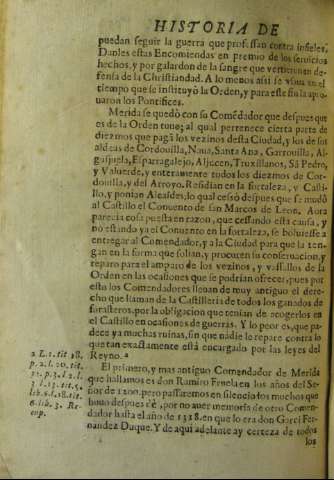 HISTORIA DE
puedan seguir la guerra que profeſſan contra infieles.
Danles eſtas Encomiendas en premio de los ſeruicios
hechos, y por galardon de la ſangre que vertieron en de-
fenſa de la Chriſtiandad. A lo menos aſsi ſe vſaua en el
tiempo que ſe inſtituyò la Orden, y para eſte fin la apro-
uaron los Pontifices.
Merida ſe quedò con ſu Comẽdador que deſpues que
es de la Orden tuuo; al qual pertenece cierta parte de
diezmos que pagã los vezinos deſta Ciudad, y los de ſus
aldeas de Cordouilla, Naua, Santa Ana, Garrouilla, Al-
guijuela, Eſparragalejo, Aljucen, Truxillanos, Sã Pedro,
y Valuerde, y enteramente todos los diezmos de Cor-
douilla, y del Arroyo. Reſidian en la fortaleza, v Caſti-
llo, y ponian Alcaides, lo qual ceſsò deſpues que ſe mudò
al Caſtillo el Conuento de ſan Marcos de Leon. Aora
parecia coſa pueſta en razon, que ceſſando eſta cauſa, y
no eſtando ya el Conuento en la fortaleza, ſe boluieſſe a
entregar al Comendador, y a la Ciudad para que la ten-
gan en la forma que ſolian, y procuren ſu conſeruacion, y
reparo para el amparo de los vezinos, y vaſſallos de la
Orden en las ocaſiones que ſe podrian ofrecer, pues por
eſto los Comendadores lleuan de muy antiguo el dere-
cho que llaman de la Caſtilleria de todos los ganados de
foraſteros, por la obligacion que tenian de acogerlos en
el Caſtillo en ocaſiones de guerras. Y lo peor es, que pa-
dece ya muchas ruinas, ſin que nadie le repare contra lo
que tan exactamente eſtà encargado por las leyes del
Reyno. a
a L. 1. tit 18.
El primero, y mas antiguo Comendador de Merida
que hallamos es don Ramiro Fruela en los años del Se-
ñor de 1200. pero paſſaremos en ſilencio los muchos que
huuo deſpues del, por no auer memoria de otro Comen-
dador haſta el año de 1318. en que lo era don Garci Fer-
nandez Duque. Y de aqui adelante ay certeza de todos
los